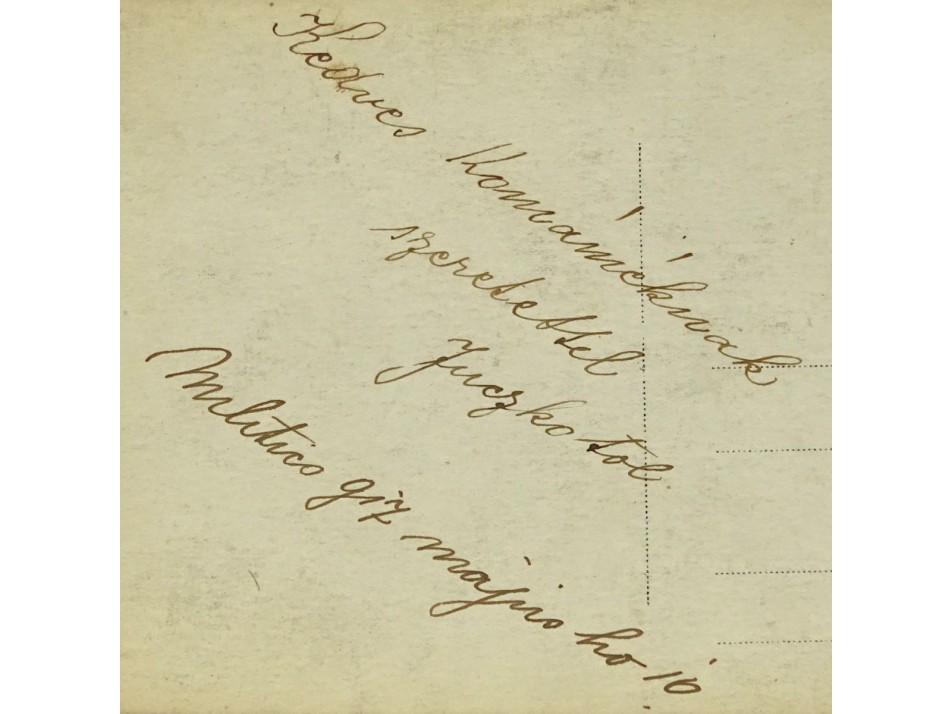 Kedves Komáméknak
szeretettel
Juczko tol
Militics 917 majus ho 16